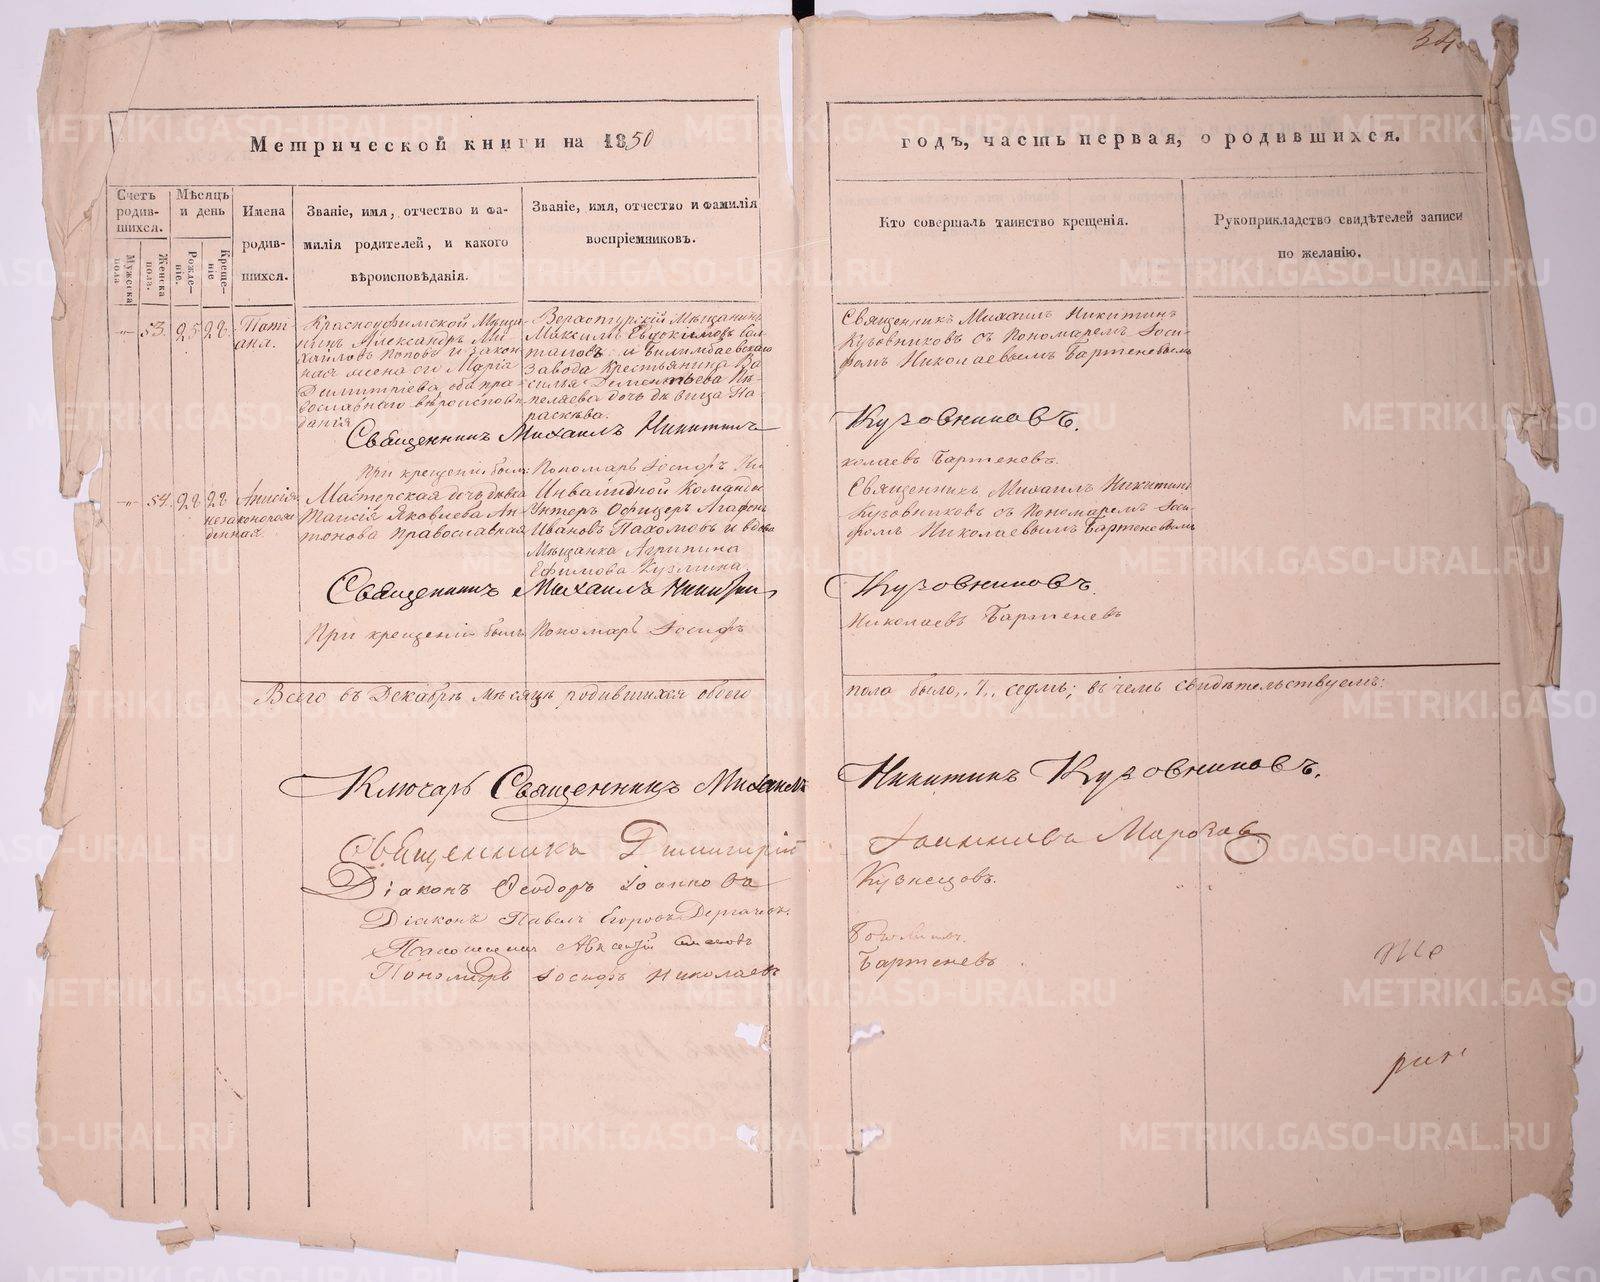 34.
Метрической книги на 1850
годъ, часть первая, о родившихся.
Счетъ родив-шихся.
Мужеска пола.
Женска пола.
Мѣсяцъ и день
Рожде-ніе.
Креще-ніе
Имена родив-шихся.
Званіе, имя, отчество и фа-
милія родителей, и какого
вѣроисповѣданія.
Званіе, имя, отчество и фамилія
воспріемниковъ.
Кто совершалъ таинство крещенія.
Рукоприкладство свидѣтелей записи
по желанію.
53. 25 28
Тати
ана.
Красноуфимской Мѣща
нинъ Александръ Ми
хайловъ Поповъ и закон
ная жена его Марія
Димитріева, оба пра-
вославнаго вѣроисповѣ
данія
Верхотурскій Мѣщанинъ
Максимъ Евдокимовъ Сал
тановъ и Билимбаевскаго
Завода Крестьянина Ва
силья Дементьева Пе-
пеляева дочь дѣвица Па
раскѣва.
Священникъ Михаилъ Никитинъ
Кузовниковъ съ Пономаремъ Іоси-
фомъ Николаевымъ Бартеневымъ
Священникъ Михаилъ Никитинъ
Кузовниковъ.
При крещеніи былъ Пономарь Іосифъ Ни
колаевъ Бартеневъ.
54. 28 28
Анисія
незаконорож
денная.
Мастерская дочь дѣвка
Таисія Яковлева Ан
тонова православная
Инвалидной Команды
Унтеръ Офицеръ Агафонъ
Ивановъ Пахомовъ и вдова
Мѣщанка Агрипина
Ефимова Кузмина.
Священникъ Михаилъ Никитинъ
Кузовниковъ съ Пономаремъ Іоси-
фомъ Николаевымъ Бартеневымъ
Священникъ Михаилъ Никитин
Кузовниковъ.
При крещеніи былъ Пономарь Іосифъ
Николаевъ Бартеневъ
Всего въ Декабрѣ мѣсяцѣ родившихся обоего
пола было, 7, седмь; въ чемъ свидѣтельствуемъ:
Ключарь Священникъ Михаилъ
Никитинъ Кузовниковъ.
Священникъ Димитрій
Іоанновъ Морозов
Діаконъ Феодоръ Іоаннова
Кузнецовъ.
Діаконъ Павелъ Егоровъ Дергачевъ.
Алексій
Пономарь Іосифъ Николаевъ
Бартеневъ
METRIKI.GASO-URAL.RU